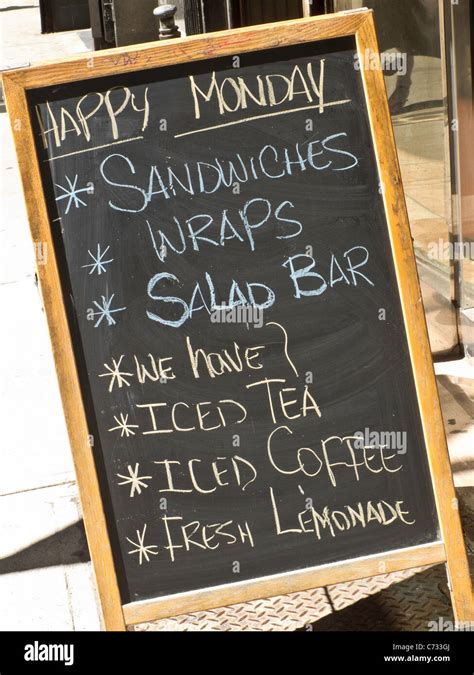 Happy Monday
* Sandwiches
* Wraps
* Salad Bar
* We have
* Iced Tea
* Iced Coffee
* Fresh Lemonade
alamy
Image ID: C733GJ
www.alamy.com